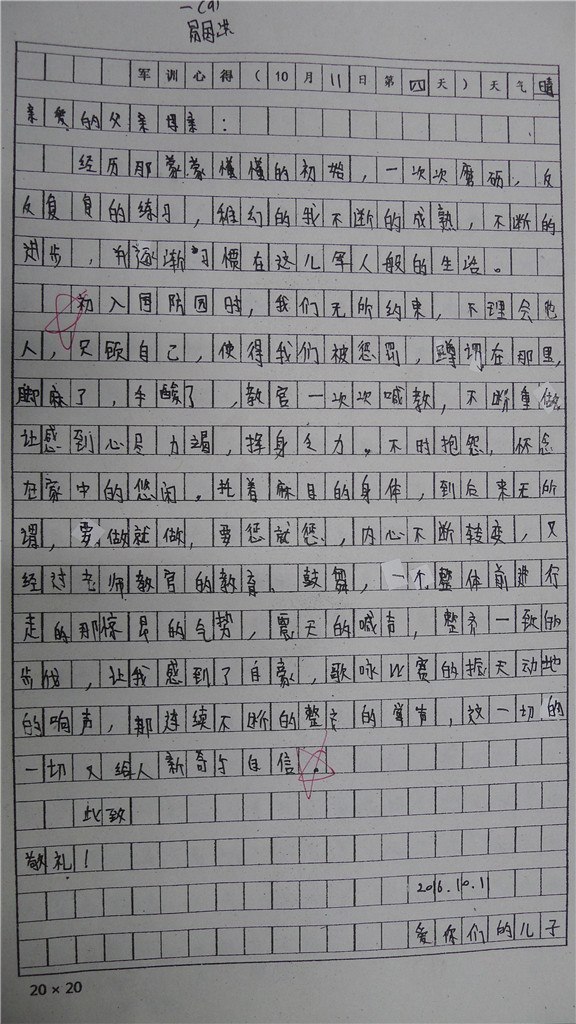 一(9)
军训心得(10月11日第四天)天气晴
亲爱的父亲母亲：
经历那蒙蒙懂懂的初始，一次次磨砺，反
反复复的练习，稚幻的我不断的成熟，不断的
进步，并逐渐习惯在这儿军人般的生活。
初入国防园时，我们无所约束，不理会他
人，只顾自己，使得我们被惩罚，蹲在那里，
脚麻了，手酸了，教官一次次喊教，不断重做
让感到心尽力竭，挥身乏力。不时抱怨，怀念
在家中的悠闲。托着麻目的身体，到后来无所
谓，要做就做，要惩就惩，内心不断转变，又
经过老师教官的教育、鼓舞，一个整体前进行
走的那惊昂的气势，震天的喊声，整齐一致的
步伐，让我感到了自豪，歌咏比赛的振天动地
的响声，那连续不断的整齐的掌声，这一切的
一切又给人新奇与自信。
此致
敬礼！
2016.10.11
爱你们的儿子
20×20